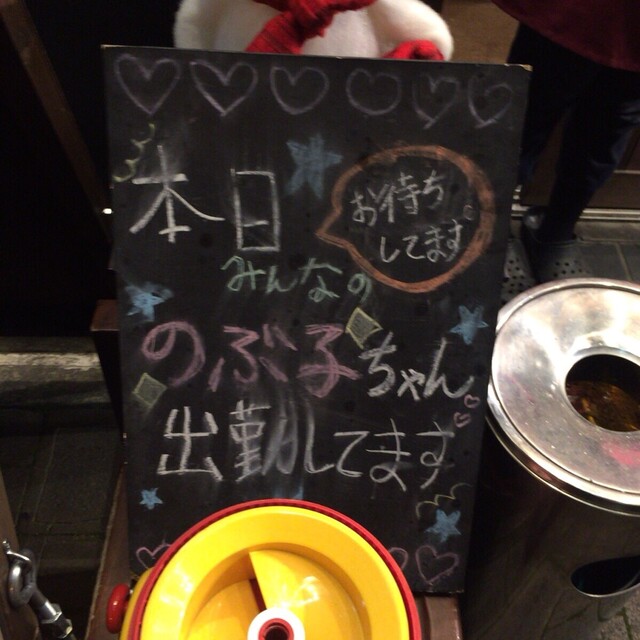 本日
お待ち
してます。
みんなの
のぶ子ちゃん
出勤してます